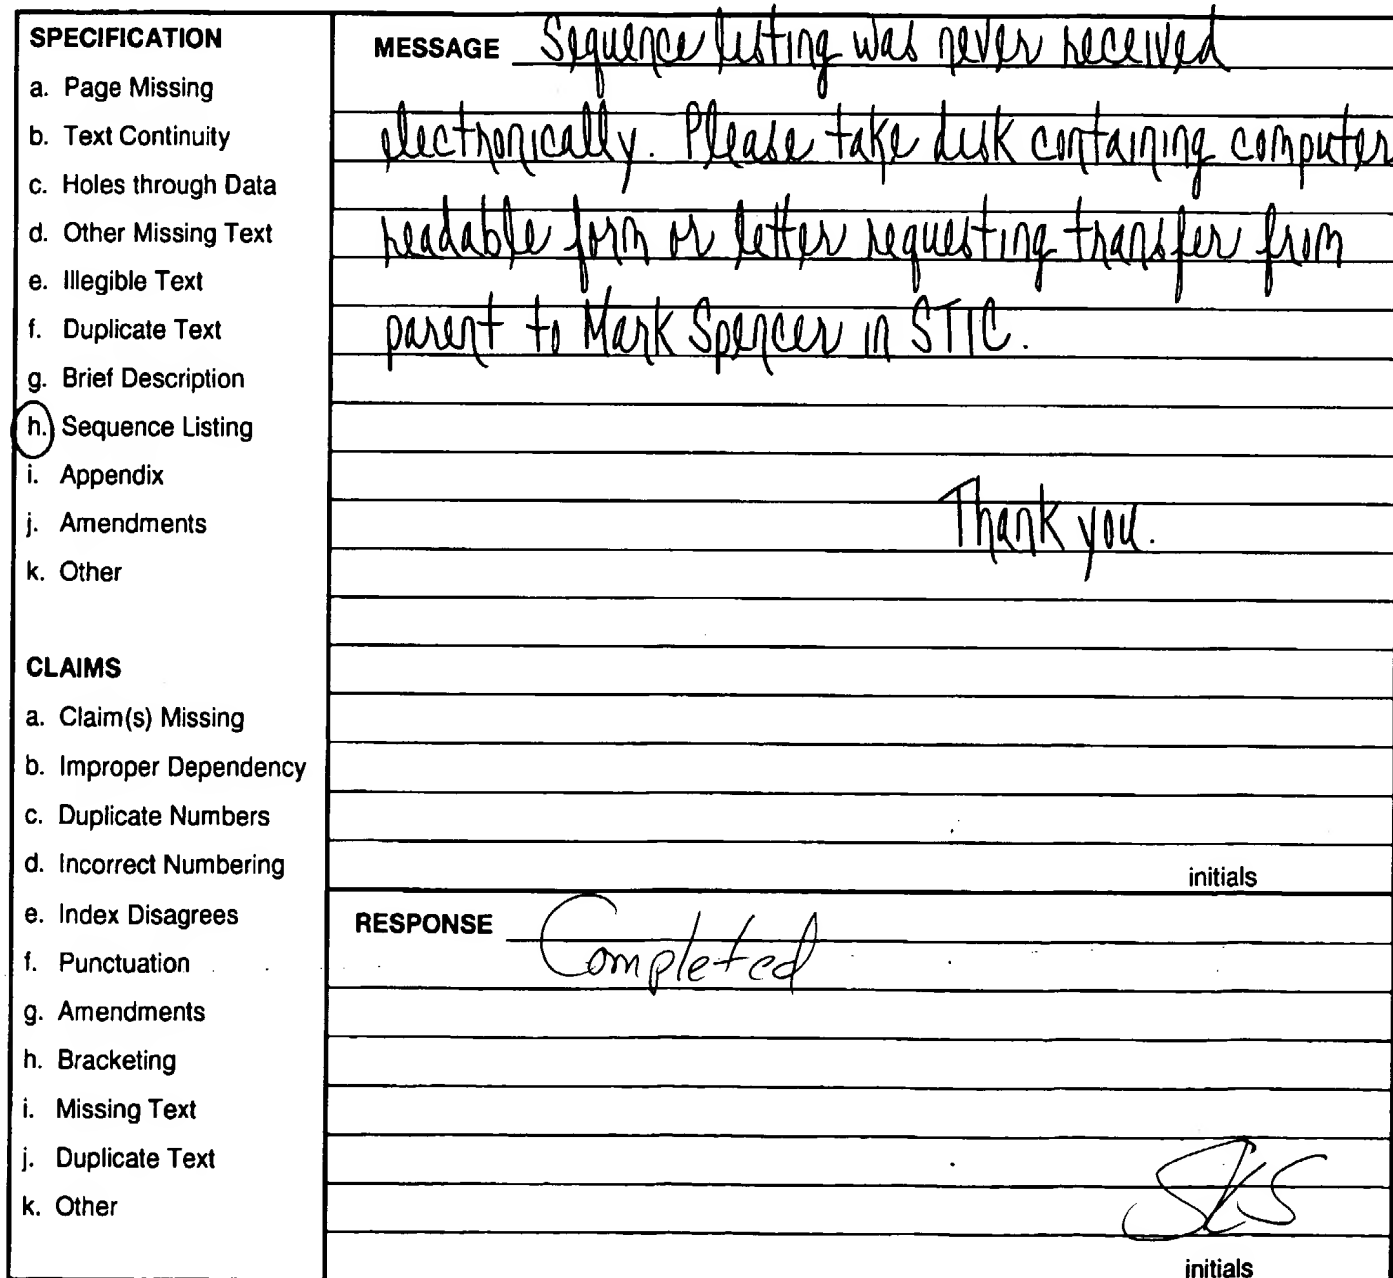 SPECIFICATION
a. Page Missing
b. Text Continuity
c. Holes through Data
d. Other Missing Text
e. Illegible Text
f. Duplicate Text
g. Brief Description
h. Sequence Listing
i. Appendix
j. Amendments
k. Other
CLAIMS
a. Claim(s) Missing
b. Improper Dependency
c. Duplicate Numbers
d. Incorrect Numbering
e. Index Disagrees
f. Punctuation
g. Amendments
h. Bracketing
i. Missing Text
j. Duplicate Text
k. Other
MESSAGE Sequence listing was never received
electronically. Please take disk containing computer
readable form or letter requesting transfer from
parent to Mark Spencer in STIC.
Thank you.
initials
RESPONSE Completed
SKS
initials